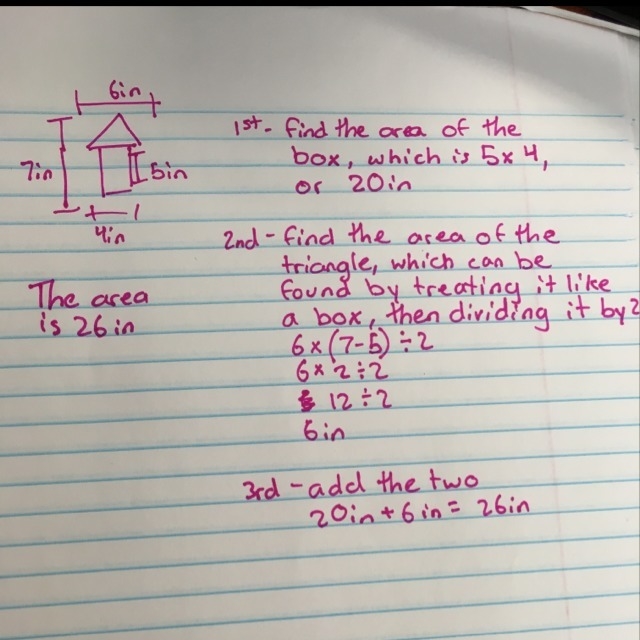 6in
7in
5in
4in
The area
is 26 in
1st - find the area of the
box, which is 5x4,
or 20in
2nd - find the area of the
triangle, which can be
found by treating it like
a box, then dividing it by 2
6x(7-5)÷2
6x2÷2
12÷2
6in
3rd - add the two
20in + 6in = 26in